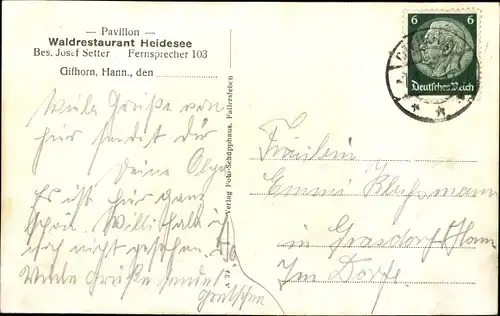 — Pavillon —
Waldrestaurant Heidesee
Bes. Josef Setter Fernsprecher 103
Gifhorn, Hann., den
Viele Grüße von
hier sendet dir
Deine Olga
Es ist hier ganz
schön. Willi habe ich
noch nicht gesehen.
Viele Grüße sendet
Gretchen
Verlag Foto-Schüpphaus, Fallersleben
A 24
6 6
Deutsches Reich
Fräulein
Emmi
in Grasdorf/Hann
Im Dorfe.